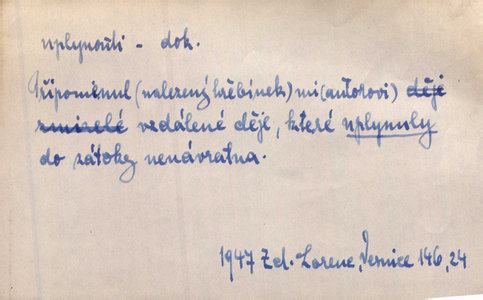 uplynouti - dok.
Připoměnul (nalezený hřebínek) mi (autorovi) děje
zmizelé vzdálené děje, které uplynuly
do zátoky nenávratna.
1947 Zd. Lorenc, Vernice 146, 24